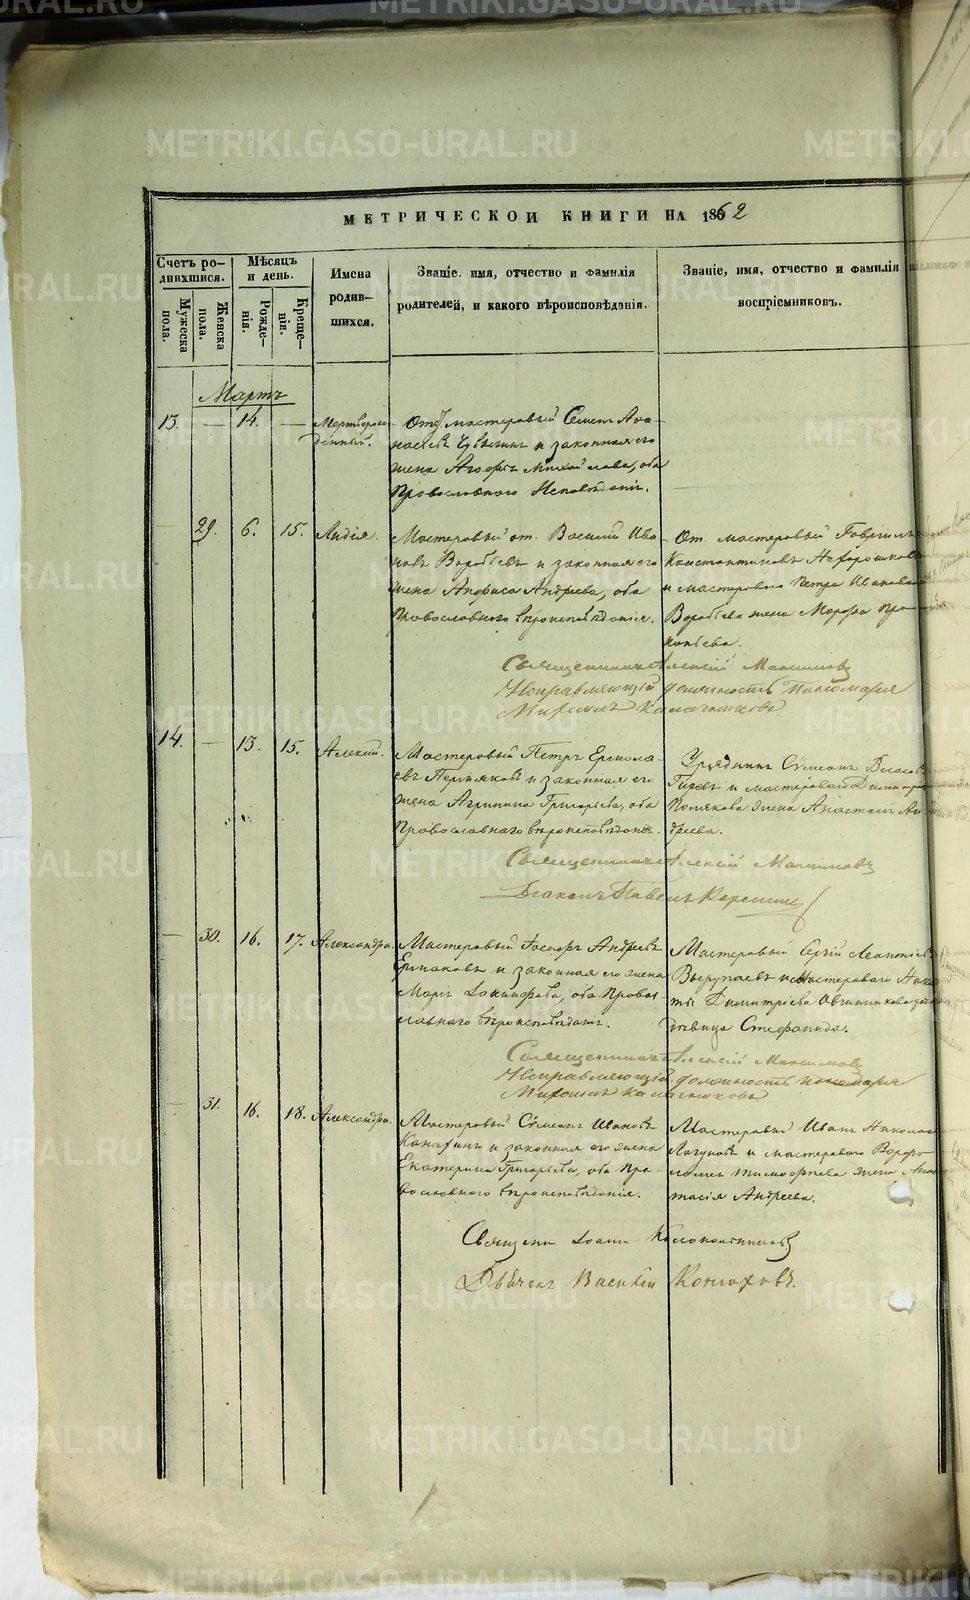 МЕТРИЧЕСКОЙ КНИГИ НА 1862
Счетъ ро-
дившихся.
Мѣсяцъ
и день.
Имена
родив-
шихся.
Званіе, имя, отчество и фамилія
родителей, и какого вѣроисповѣданія.
Званіе, имя, отчество и фамилія
воспріемниковъ.
Мужеска
пола.
Женска
пола.
Рожде-
нія.
Креще-
нія.
Мартъ
13. — 14. — Мертворож
денный.
мастеровый Семенъ Афа-
насьевъ и законная его
жена Михайлова, оба
Православнаго Исповѣданія.
29. 6. 15. Лидія.
Мастеровый от. Василій Ива-
новъ Воробьевъ и законная его
жена Анфиса Андреева, оба
Православнаго вѣроисповѣданія.
От мастеровый Гавріилъ
Константиновъ
и мастероваго Петра Иванова
Воробьева жена Марфа Про-
копьева.
Священникъ Алексій Максимовъ
Исправляющій должность Пономаря
Калашниковъ
14. — 13. 15. Алексій.
Мастеровый Петръ Ермола-
евъ Пермяковъ и законная его
жена Агрипина Григорьева, оба
Православнаго вѣроисповѣданія.
Урядникъ Сѵмеонъ Власовъ
и мастероваго Димитрія
Полякова жена Анастасія Ан-
дреева.
Священникъ Алексій Максимовъ
Діаконъ Павелъ
— 30. 16. 17. Александра.
Мастеровый Андреевъ
Ермаковъ и законная его жена
Марія Іакинфова, оба Право-
славнаго вѣроисповѣданія.
Мастеровый Сергій Леонтіевъ
и мастероваго
Димитріева Овчинникова дочь
дѣвица Стефанида.
Священникъ Алексій Максимовъ
Исправляющій должность пономаря
Калашниковъ
31. 16. 18. Александра.
Мастеровый Сѵмеонъ Ивановъ
и законная его жена
Екатерина Григорьева, оба Пра-
вославнаго вѣроисповѣданія.
Мастеровый Иванъ Николаевъ
и мастероваго Варфо-
ломея Тимофеева жена Анас-
тасія Андреева.
Священ Іоаннъ
Дьячекъ Василій Конюховъ.
METRIKI.GASO-URAL.RU